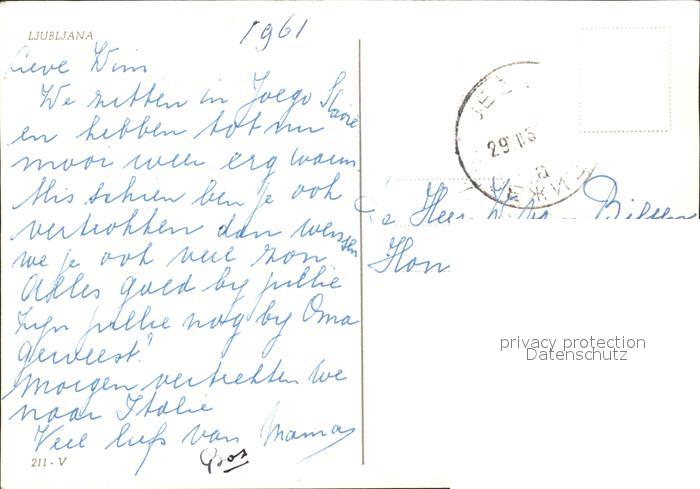 1961
LJUBLJANA
Lieve Wim
We zitten in Joego Slavië
en hebben tot nu
mooi weer erg warm.
Misschien ben je ook
vertrokken dan wensen
we je ook veel zon
Alles goed by jullie
Zyn jullie nog by Oma
geweest.
Morgen vertrekken we
naar Italie
Veel liefs van Mama
211 - V
29 II 6
De Heer
Hon
privacy protection
Datenschutz